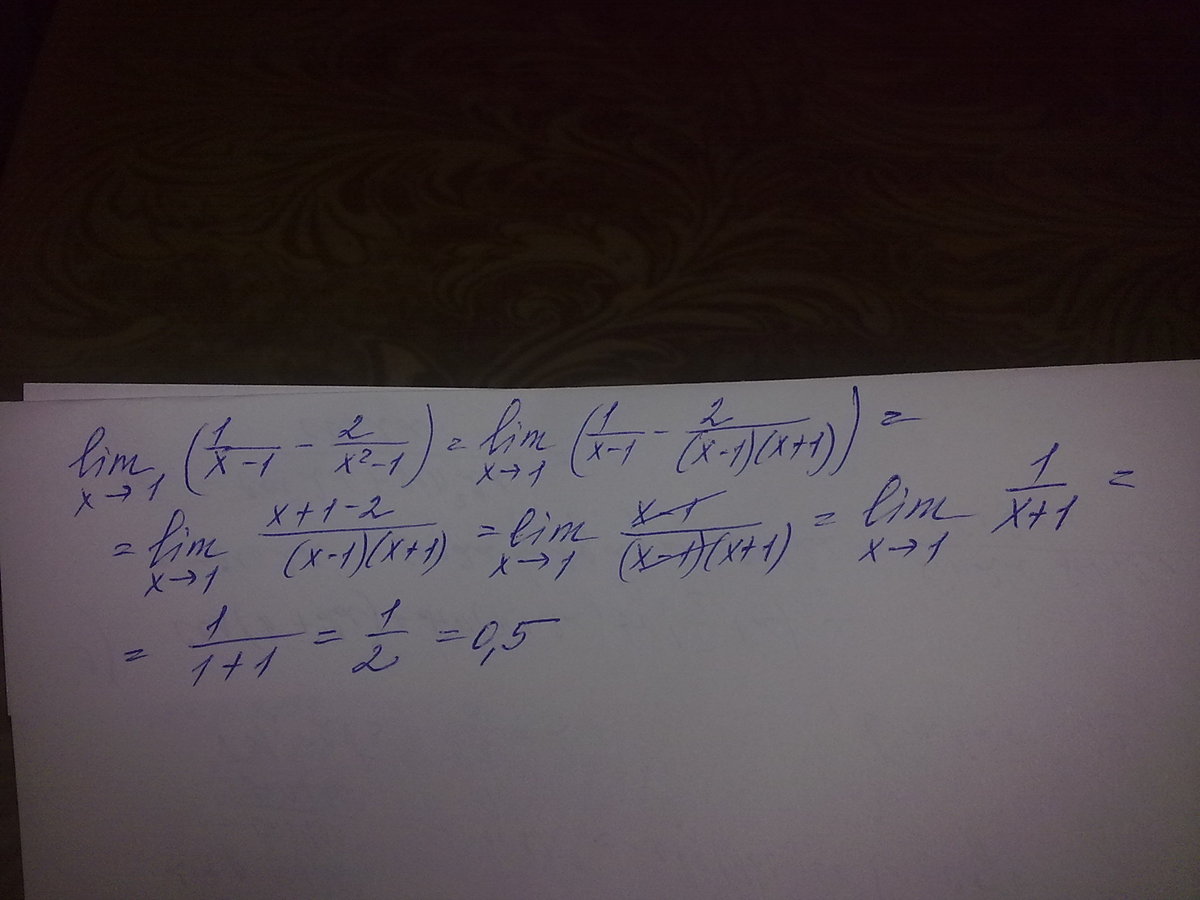 lim x→1 (1/(x-1) - 2/(x²-1)) = lim x→1 (1/(x-1) - 2/((x-1)(x+1))) =
= lim x→1 (x+1-2)/((x-1)(x+1)) = lim x→1 (x-1)/((x-1)(x+1)) = lim x→1 1/(x+1) =
= 1/(1+1) = 1/2 = 0,5